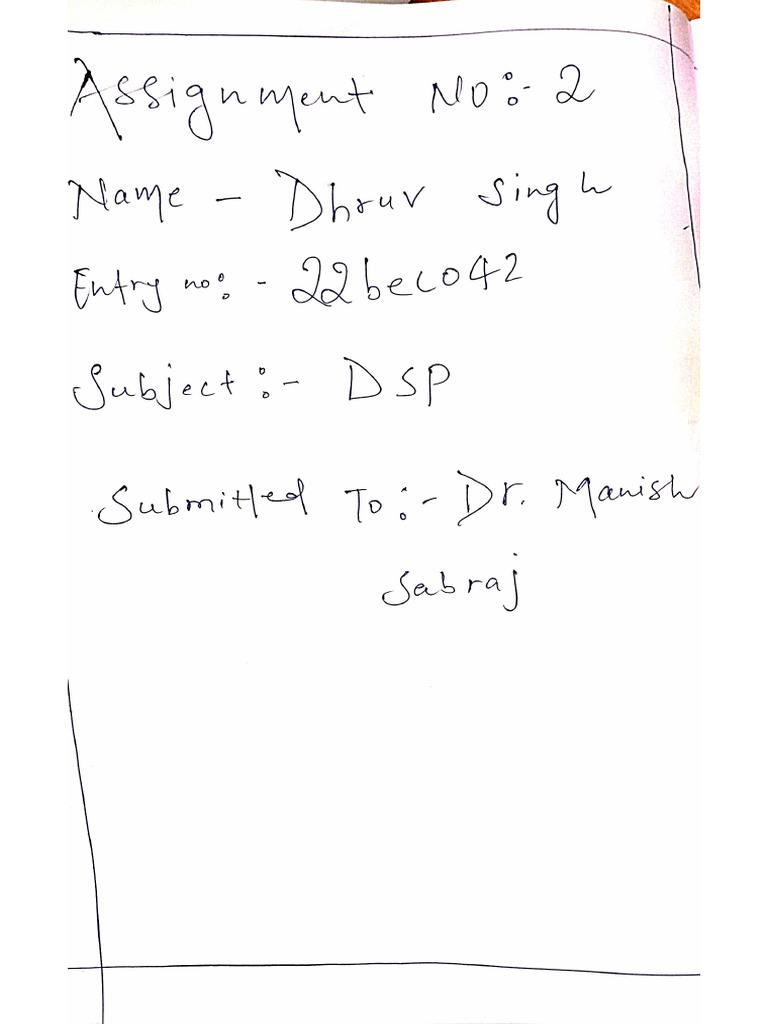 Assignment No:- 2
Name - Dhruv Singh
Entry no:- 22bec042
Subject:- DSP
Submitted To:- Dr. Manish
Sabraj